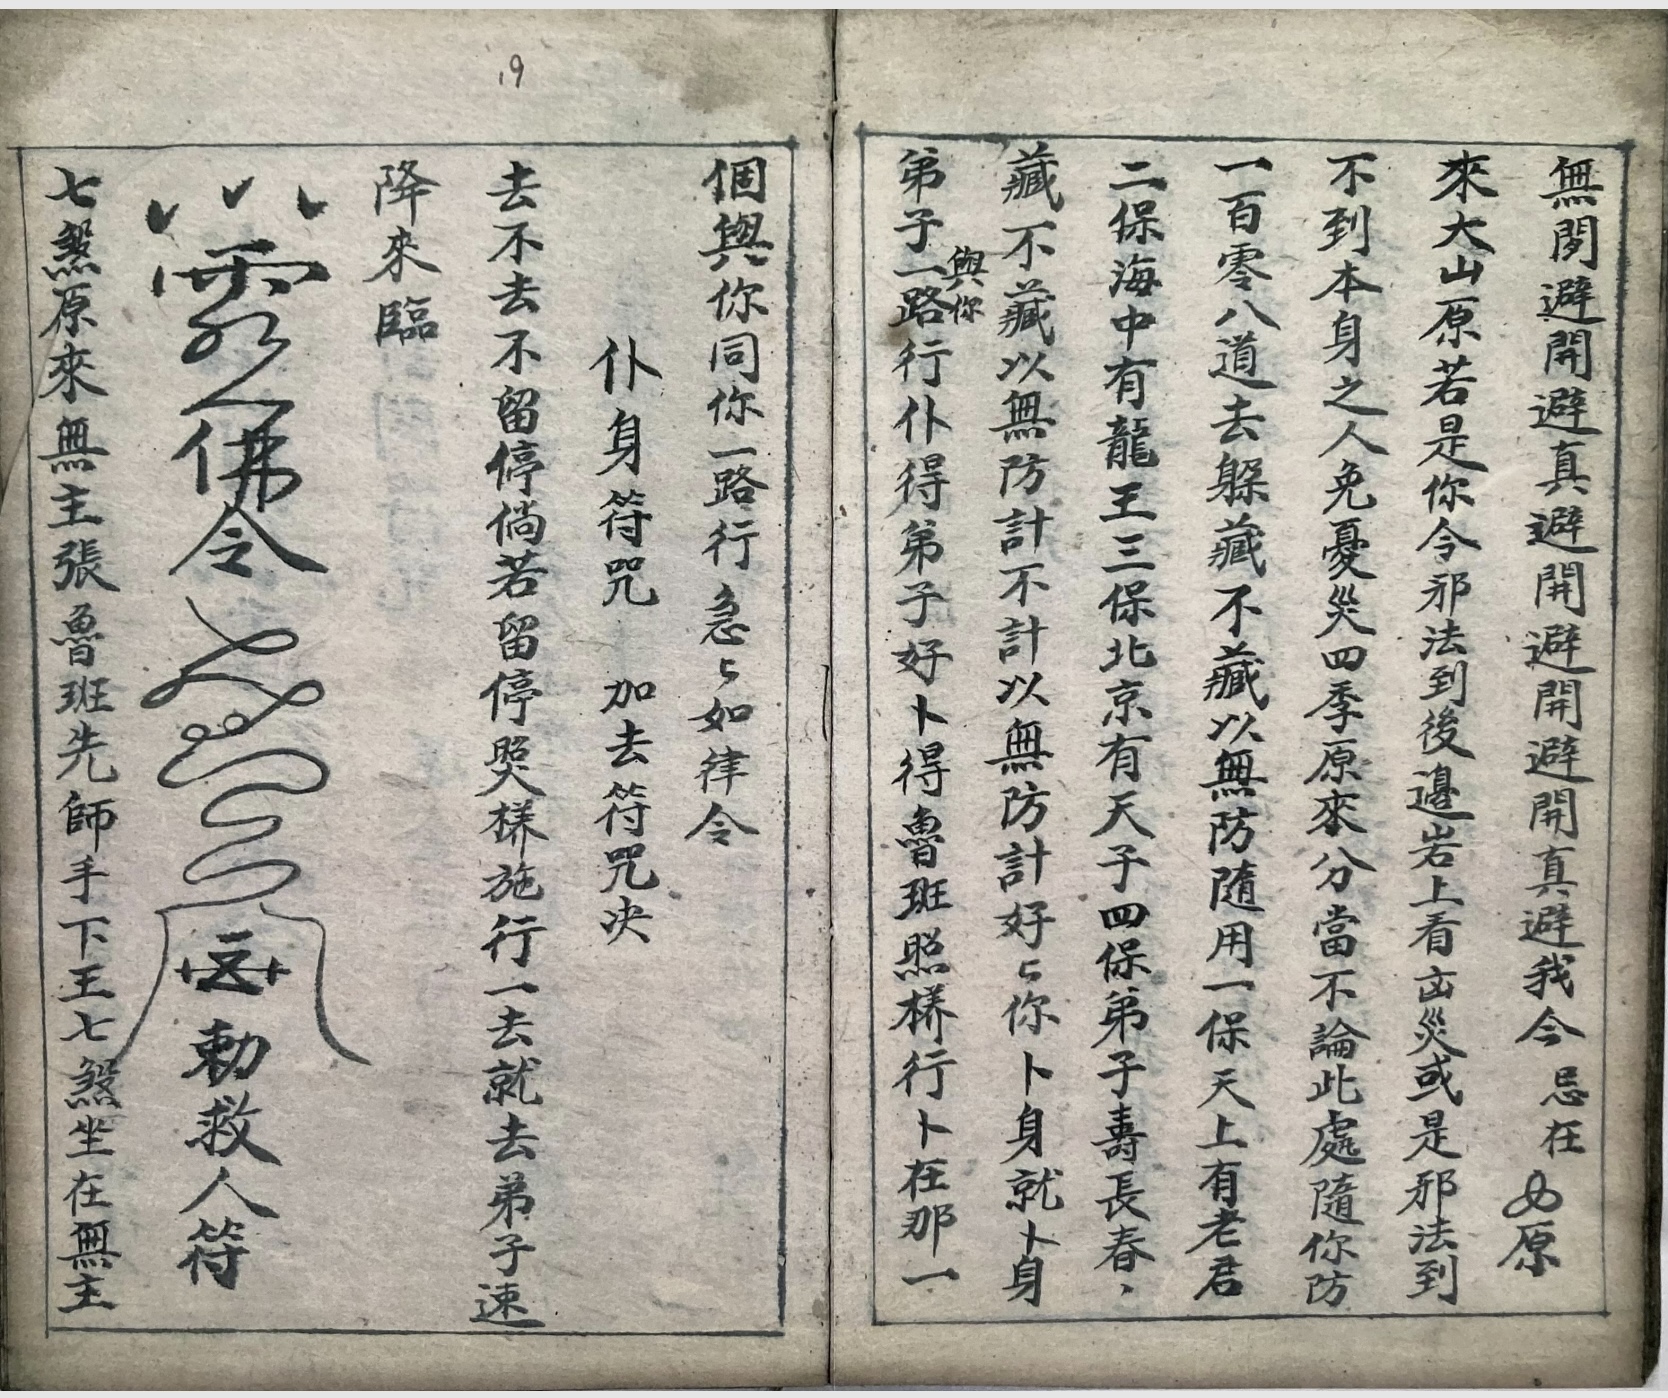 無閔避開避真避開避開避開真避我今忌在
原
來大山原若是你令邪法到後邊岩上看凶災或是邪法到
不到本身之人免憂災四季原來分當不論此處隨你防
一百零八道去躲藏不藏以無防隨用一保天上有老君
二保海中有龍王三保北京有天子四保弟子壽長春、
藏不藏以無防計不計以無防計好〻你卜身就卜身
與你
弟子一路行仆得弟子好卜得魯班照樣行卜在那一
19
個與你同你一路行急〻如律令
仆身符咒 加去符咒决
去不去不留停倘若留停照樣施行一去就去弟子速
降來臨
佛令
勅救人符
七煞原來無主張魯班先師手下王七煞坐在無主